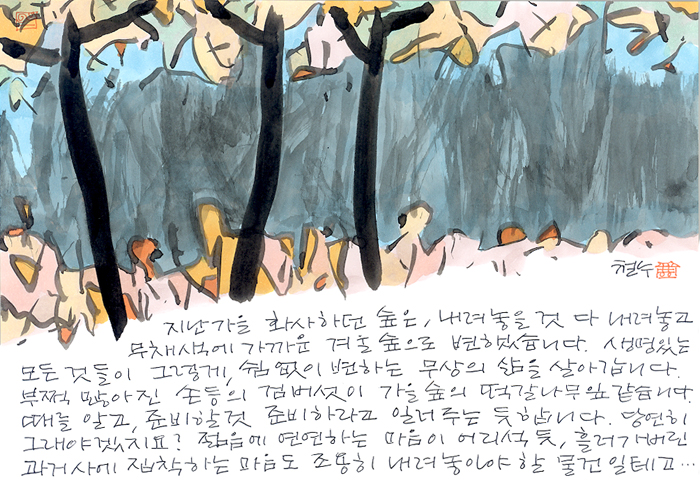 철수
지난가을 화사하던 숲은, 내려놓을 것 다 내려놓고
무채색에 가까운 겨울 숲으로 변했습니다. 생명있는
모든 것들이 그렇게, 쉼 없이 변하는 무상의 삶을 살아갑니다.
부쩍 많아진 손등의 검버섯이 가을 숲의 떡갈나무잎 같습니다.
때를 알고, 준비할것 준비하라고 일러주는 듯 합니다. 당연히
그래야겠지요? 젊음에 연연하는 마음이 어리석 듯, 흘러가버린
과거사에 집착하는 마음도 조용히 내려놓아야 할 물건일테고…